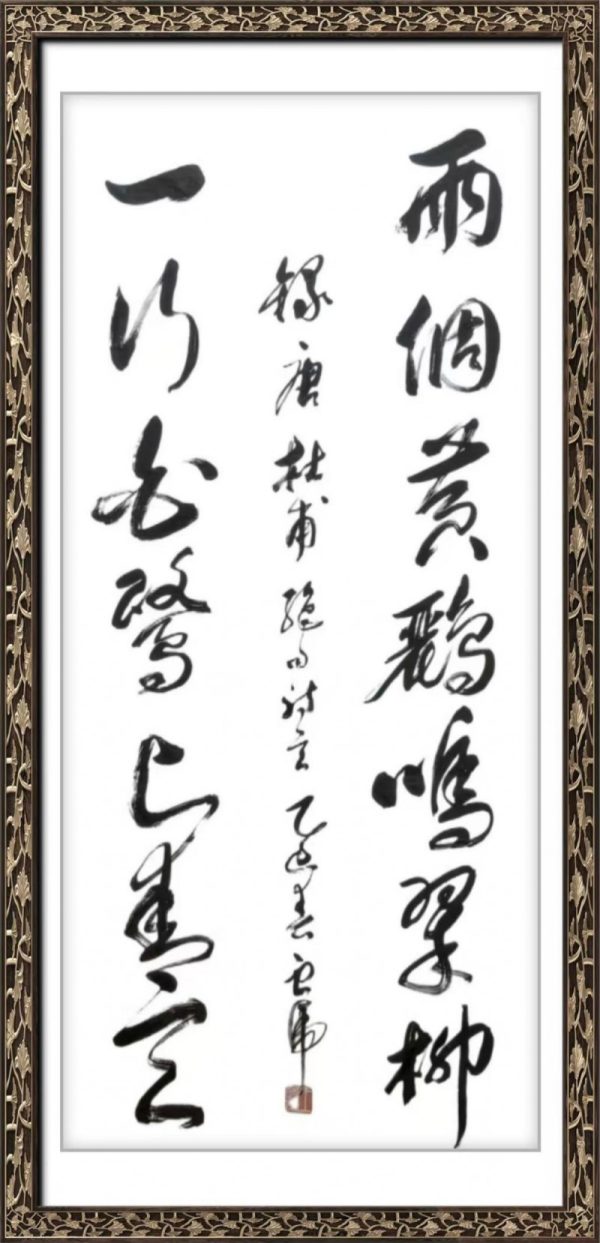 兩個黃鸝鳴翠柳
一行白鷺上青天
錄唐杜甫絕句詩乙巳春